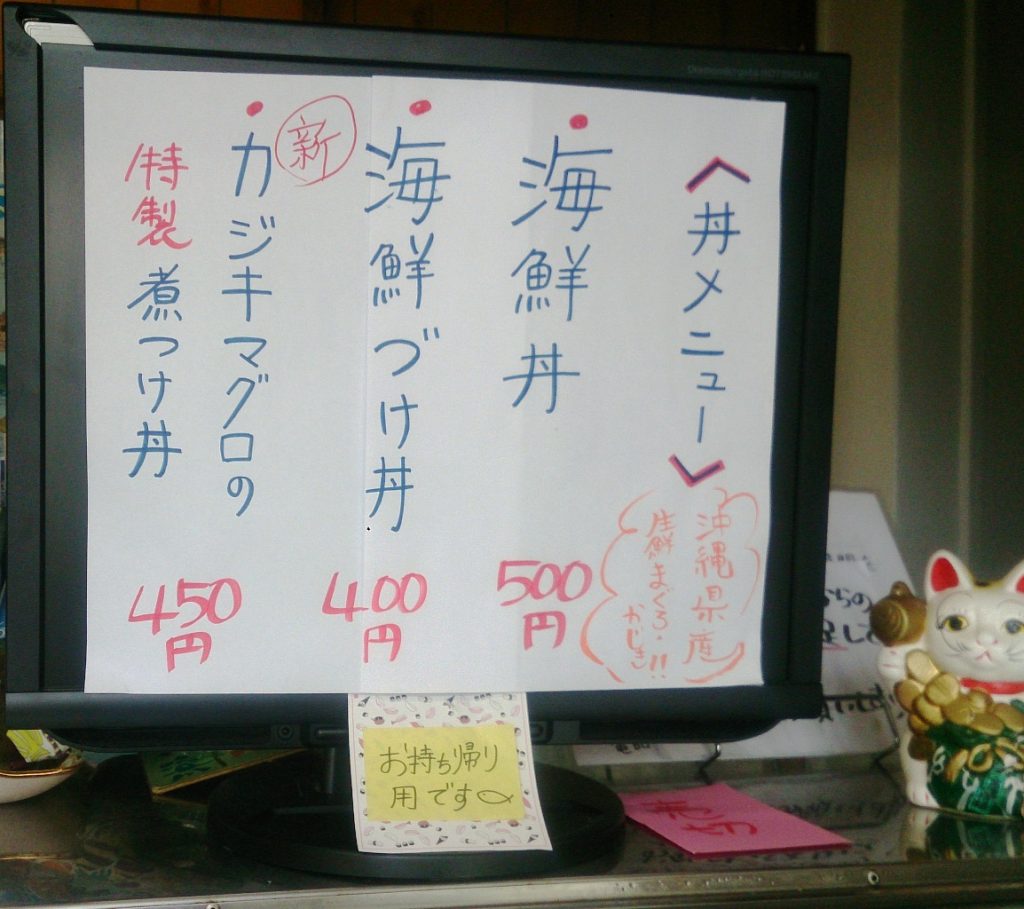 〈丼メニュー〉
沖縄県産
生鮮まぐろ・かじき!!
・海鮮丼
500円
・海鮮づけ丼
400円
新
・カジキマグロの
特製煮つけ丼
450円
お持ち帰り
用です